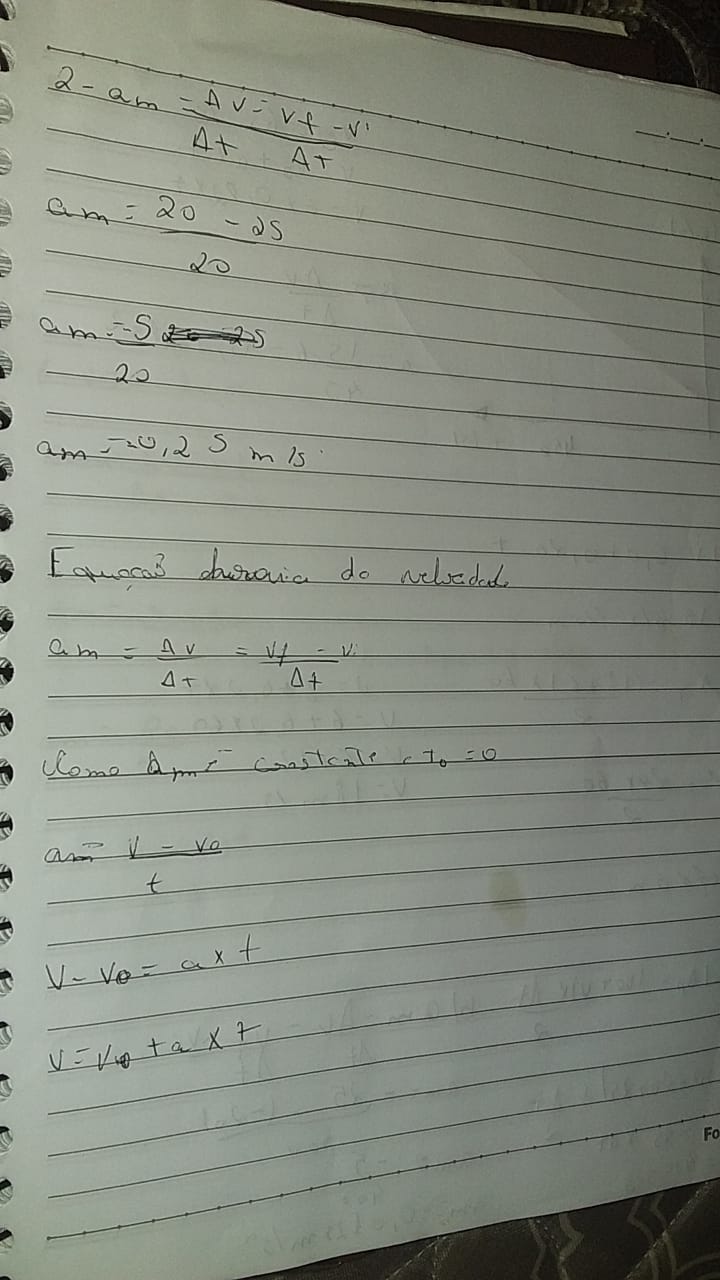 2 - am = Δv = vf - vi
Δt Δt
am = 20 - 25
20
am = -5
20
am = -0,25 m/s
Equação do velocidade
am = Δv = vf - vi
Δt Δt
Como am é constante e t₀ = 0
am = v - v₀
t
V - V₀ = a x t
V = V₀ + a x t
Fo